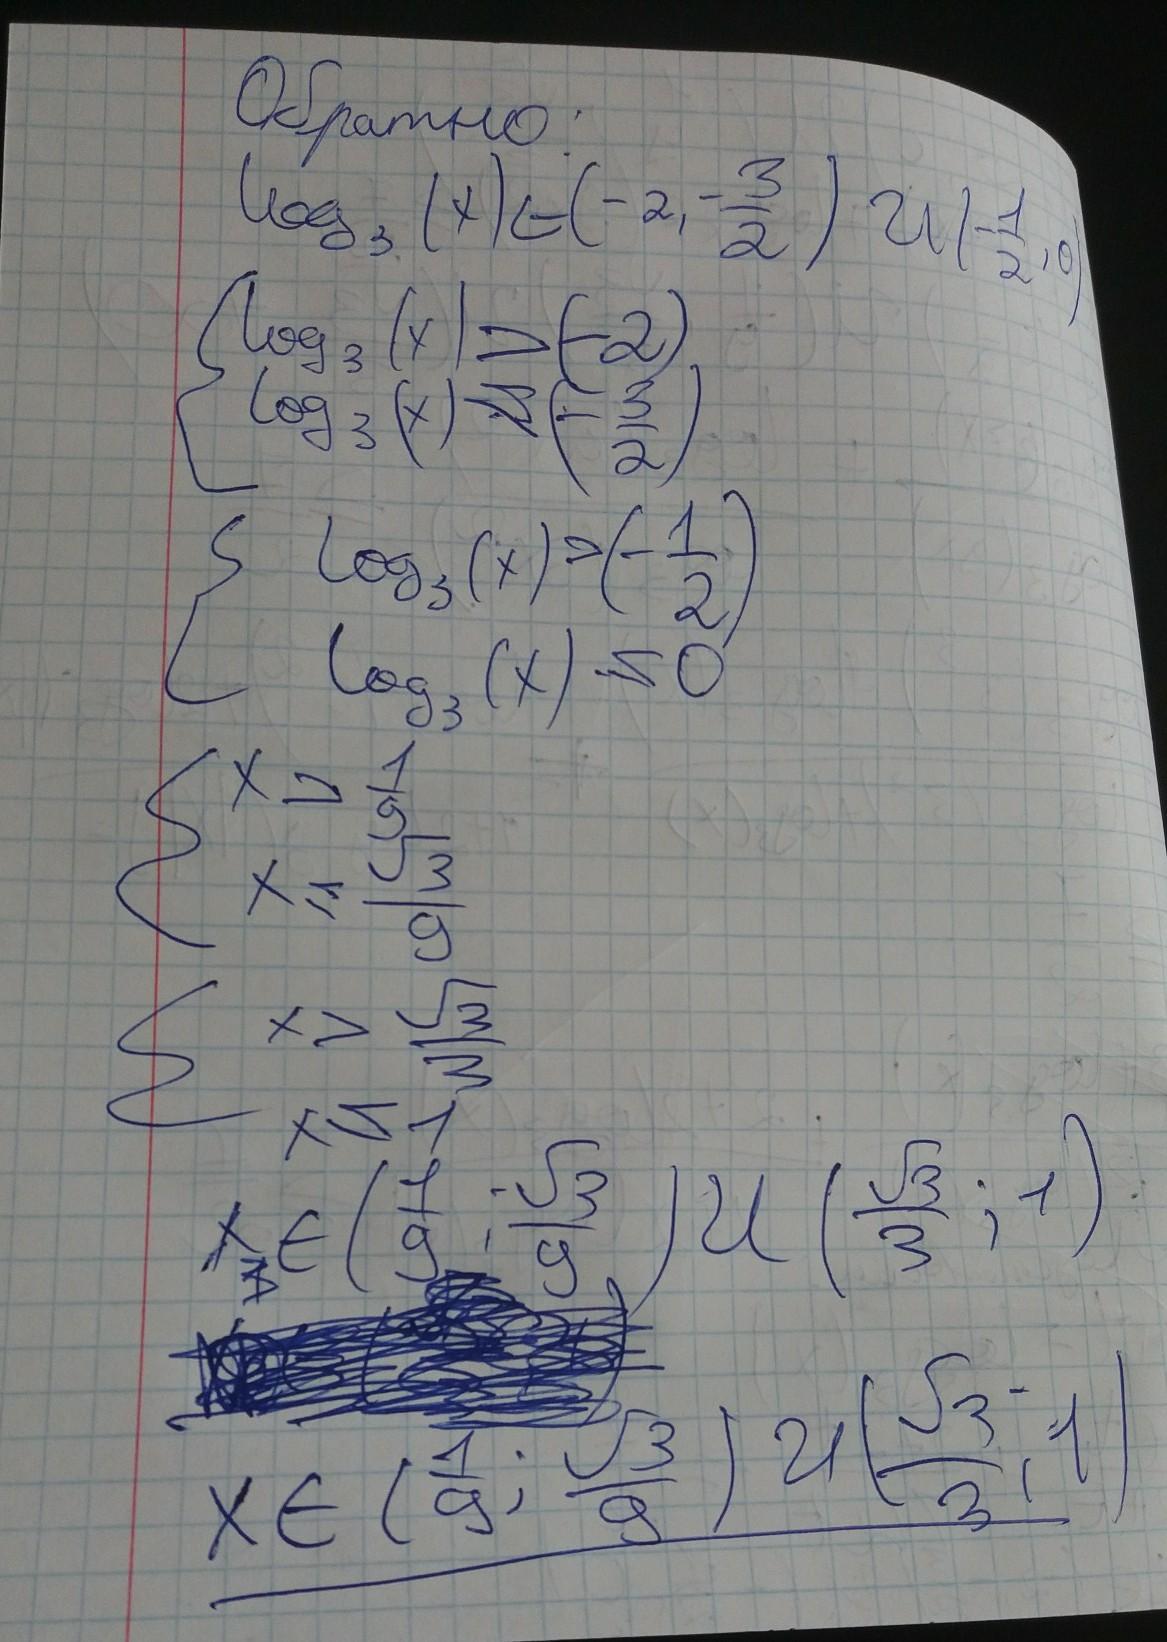 Обратно:
log₃(x)∈(-2,-3/2) U (-1/2,0)
log₃(x) > (-2)
log₃(x) < (-3/2)
log₃(x) > (-1/2)
log₃(x) < 0
x > 1/9
x < √3/9
x > √3/3
x < 1
x ∈ (1/9 ; √3/9) U (√3/3 ; 1)
x ∈ (1/9 ; √3/9) U (√3/3 ; 1)